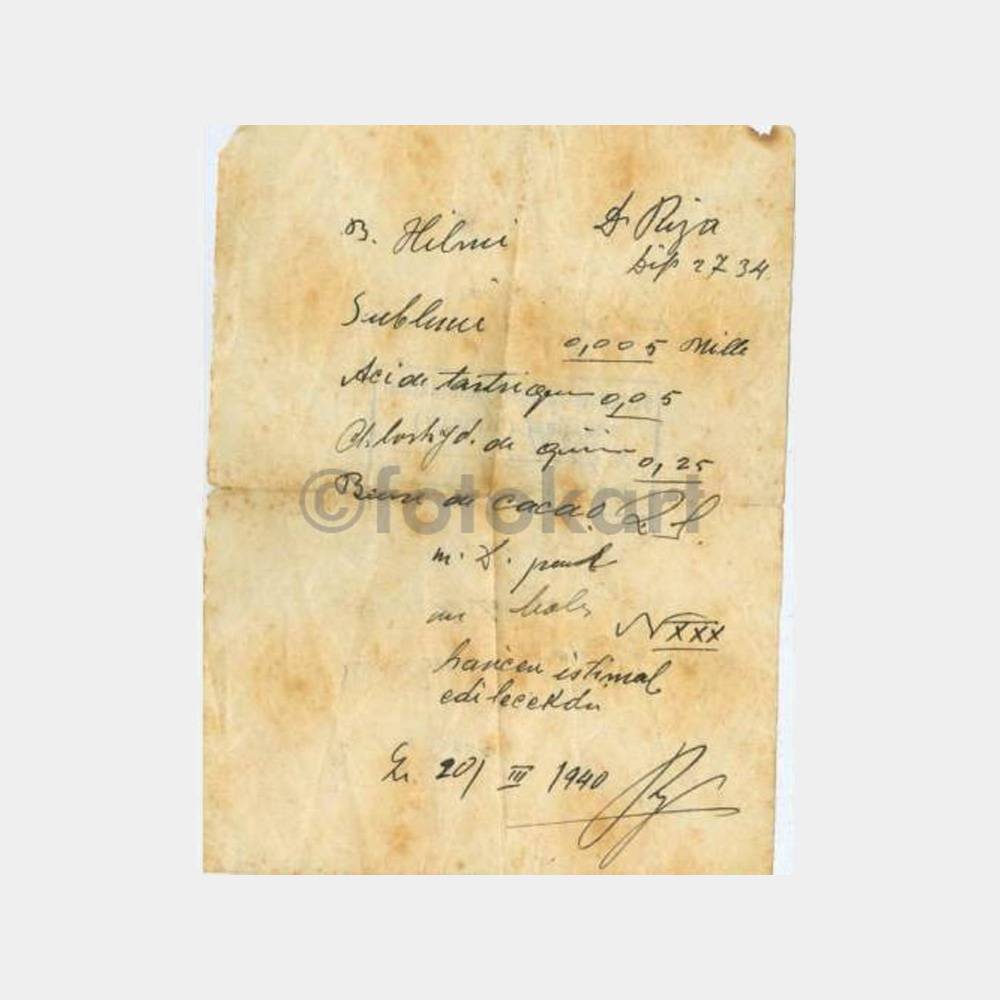 B. Hilmi
Dr Riza
Dip 2734
Sublimé
0,005 Mille
Acide tartrique 0,05
Chlorhyd. de quin 0,25
Beurre de cacao
©fotokart
m. D. pour
N XXX
haricen istimal
edilecekdir
20/III 1940